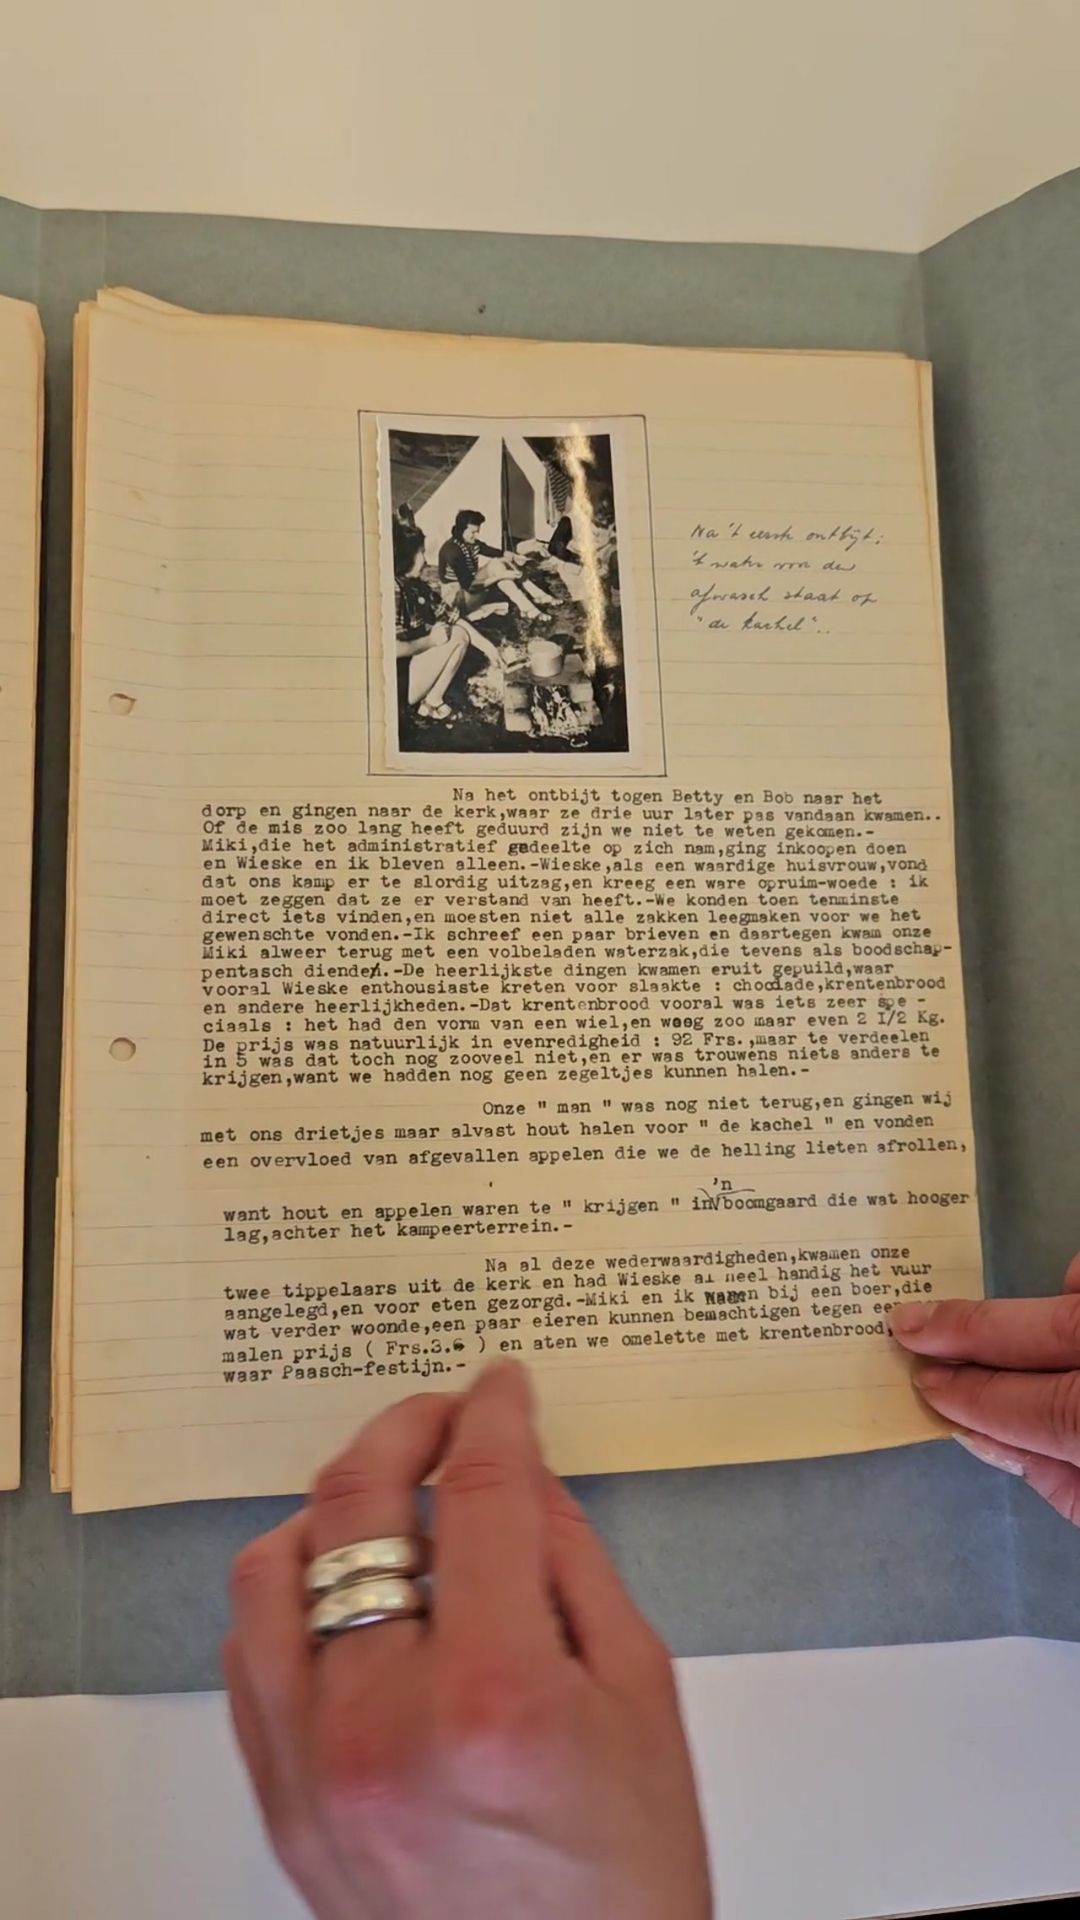 Na 't eerste ontbijt;
't water voor den
afwasch staat op
"de kachel"..
Na het ontbijt togen Betty en Bob naar het
dorp en gingen naar de kerk,waar ze drie uur later pas vandaan kwamen..
Of de mis zoo lang heeft geduurd zijn we niet te weten gekomen.-
Miki,die het administratief gedeelte op zich nam,ging inkoopen doen
en Wieske en ik bleven alleen.-Wieske,als een waardige huisvrouw,vond
dat ons kamp er te slordig uitzag,en kreeg een ware opruim-woede : ik
moet zeggen dat ze er verstand van heeft.-We konden toen tenminste
direct iets vinden,en moesten niet alle zakken leegmaken voor we het
gewenschte vonden.-Ik schreef een paar brieven en daartegen kwam onze
Miki alweer terug met een volbeladen waterzak,die tevens als boodschap-
pentasch diende.-De heerlijkste dingen kwamen eruit gepuild,waar
vooral Wieske enthousiaste kreten voor slaakte : chocolade,krentenbrood
en andere heerlijkheden.-Dat krentenbrood vooral was iets zeer spe -
ciaals : het had den vorm van een wiel,en woog zoo maar even 2 I/2 Kg.
De prijs was natuurlijk in evenredigheid : 92 Frs.,maar te verdeelen
in 5 was dat toch nog zooveel niet,en er was trouwens niets anders te
krijgen,want we hadden nog geen zegeltjes kunnen halen.-
Onze " man " was nog niet terug,en gingen wij
met ons drietjes maar alvast hout halen voor " de kachel " en vonden
een overvloed van afgevallen appelen die we de helling lieten afrollen,
want hout en appelen waren te " krijgen " in 'n boomgaard die wat hooger
lag,achter het kampeerterrein.-
Na al deze wederwaardigheden,kwamen onze
twee tippelaars uit de kerk en had Wieske al heel handig het vuur
aangelegd,en voor eten gezorgd.-Miki en ik bij een boer,die
wat verder woonde,een paar eieren kunnen bemachtigen tegen
malen prijs ( Frs.3. ) en aten we omelette met krentenbrood,
waar Paasch-festijn.-